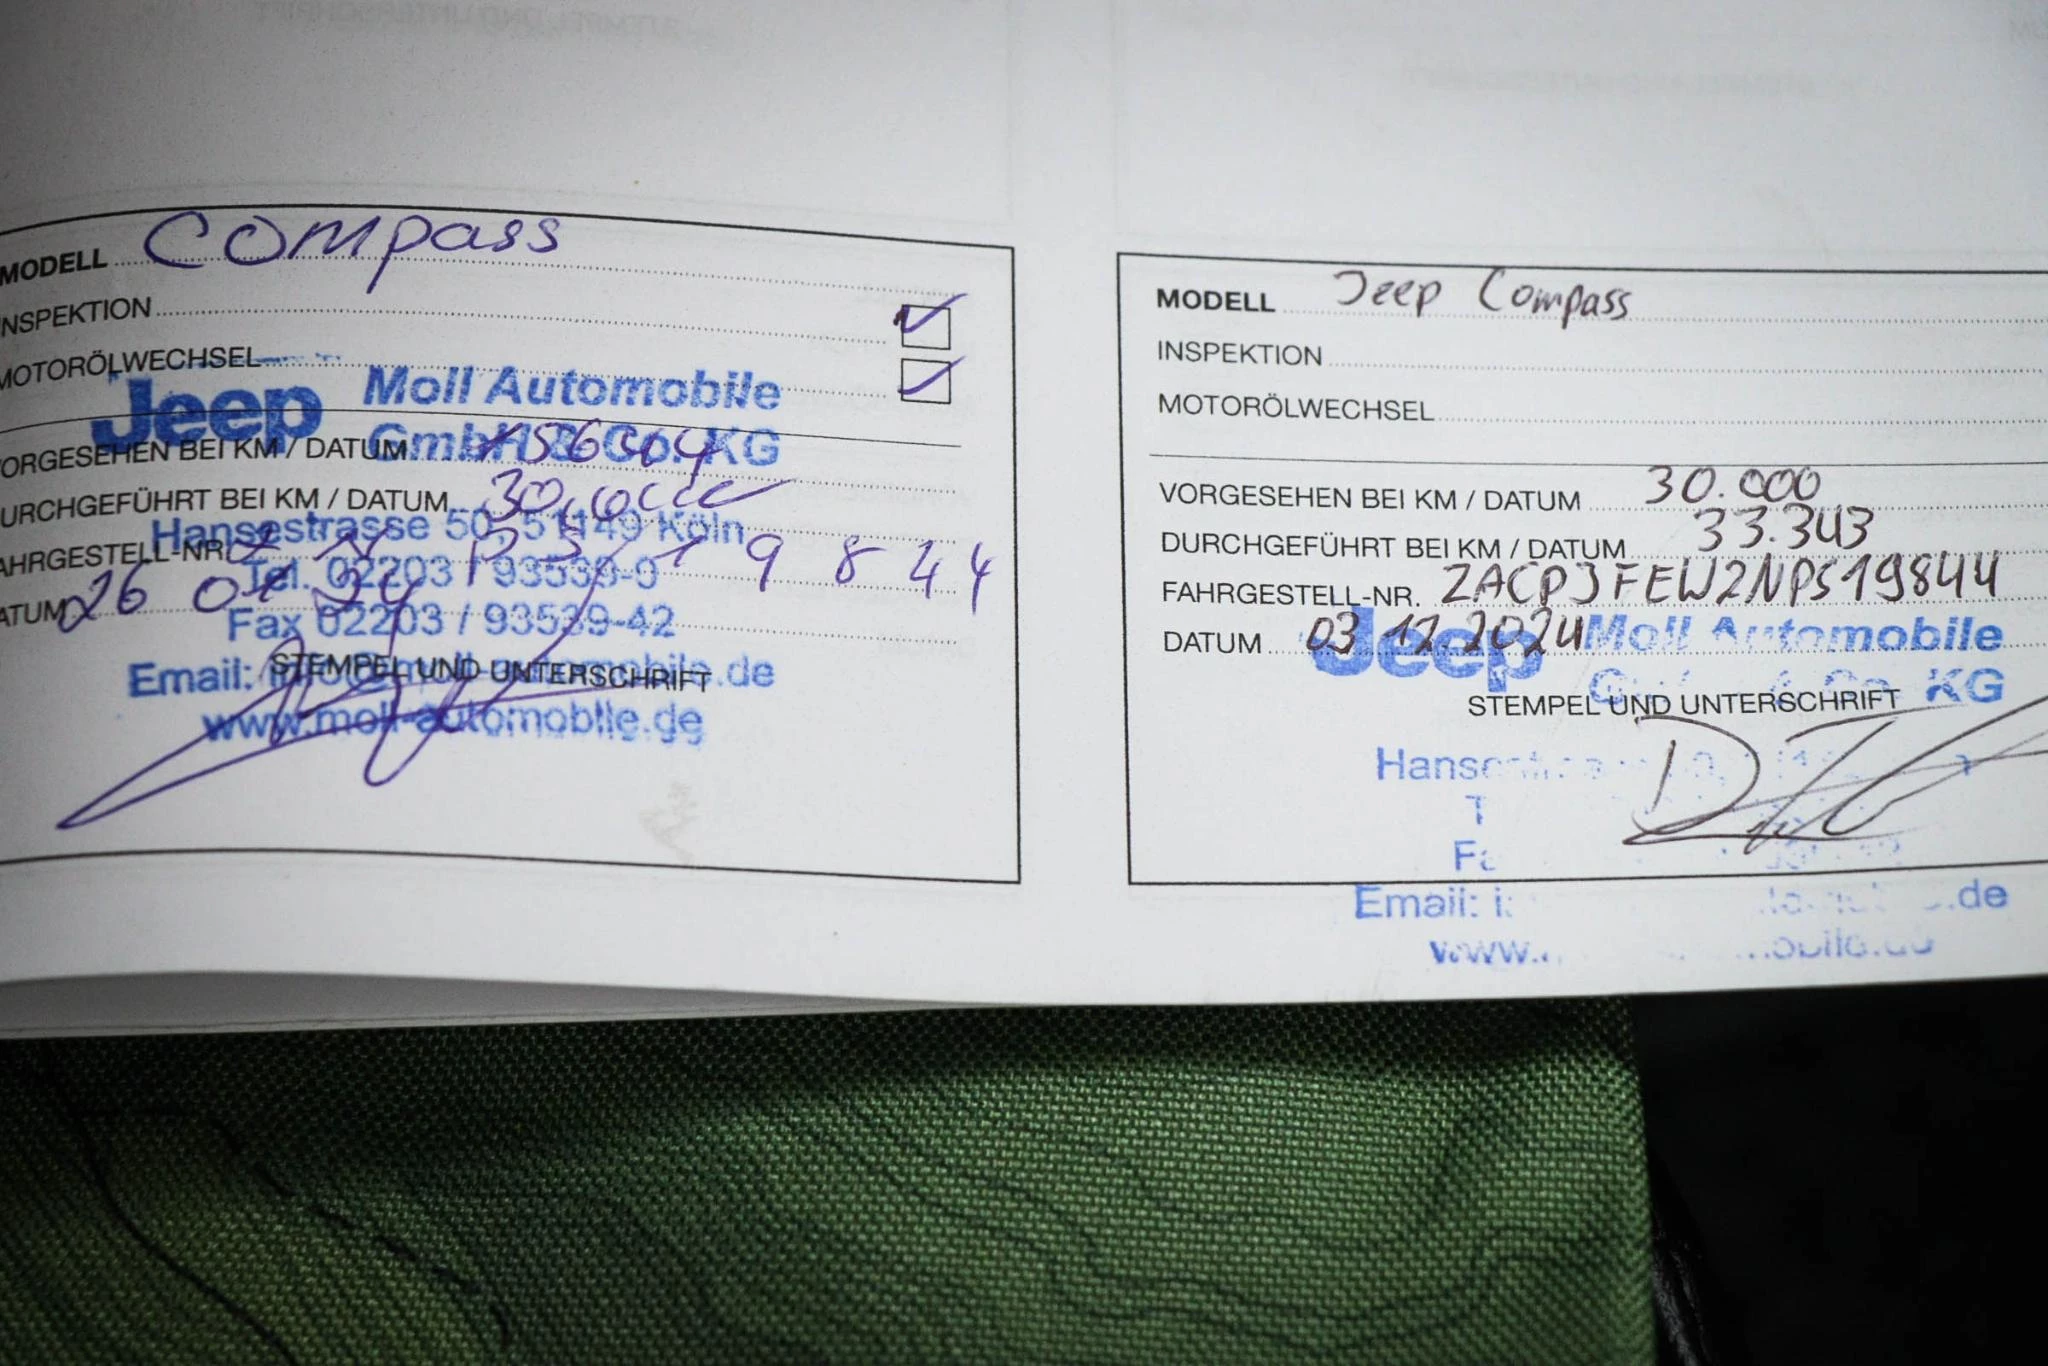 MODELL Compass
NSPEKTION
MOTORÖLWECHSEL
Jeep Moll Automobile
GmbH & Co. KG
ORGESEHEN BEI KM / DATUM
URCHGEFÜHRT BEI KM / DATUM 30.000
Hansestrasse 50, 51149 Köln
AHRGESTELL-NR. 19844
Tel. 02203 / 93539-0
ATUM 26
Fax 02203 / 93539-42
STEMPEL UND UNTERSCHRIFT
Email: info@moll-automobile.de
www.moll-automobile.de
MODELL Jeep Compass
INSPEKTION
MOTORÖLWECHSEL
VORGESEHEN BEI KM / DATUM 30.000
DURCHGEFÜHRT BEI KM / DATUM 33.343
FAHRGESTELL-NR. ZACPJFEW2NPS19844
DATUM 03.12.2024
Jeep Moll Automobile
KG
STEMPEL UND UNTERSCHRIFT
Email: .de
www.